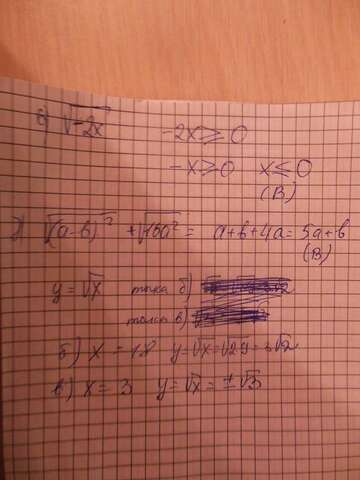 √-2x
-2x ≥ 0
-x ≥ 0 x ≤ 0
(В)
√(a-b)² + √16a² = a+b+4a = 5a+b
(В)
y = √x точка б)
точка в)
б) x = 18 y = √x = √29 = 3√2
в) x = 3 y = √x = ±√3